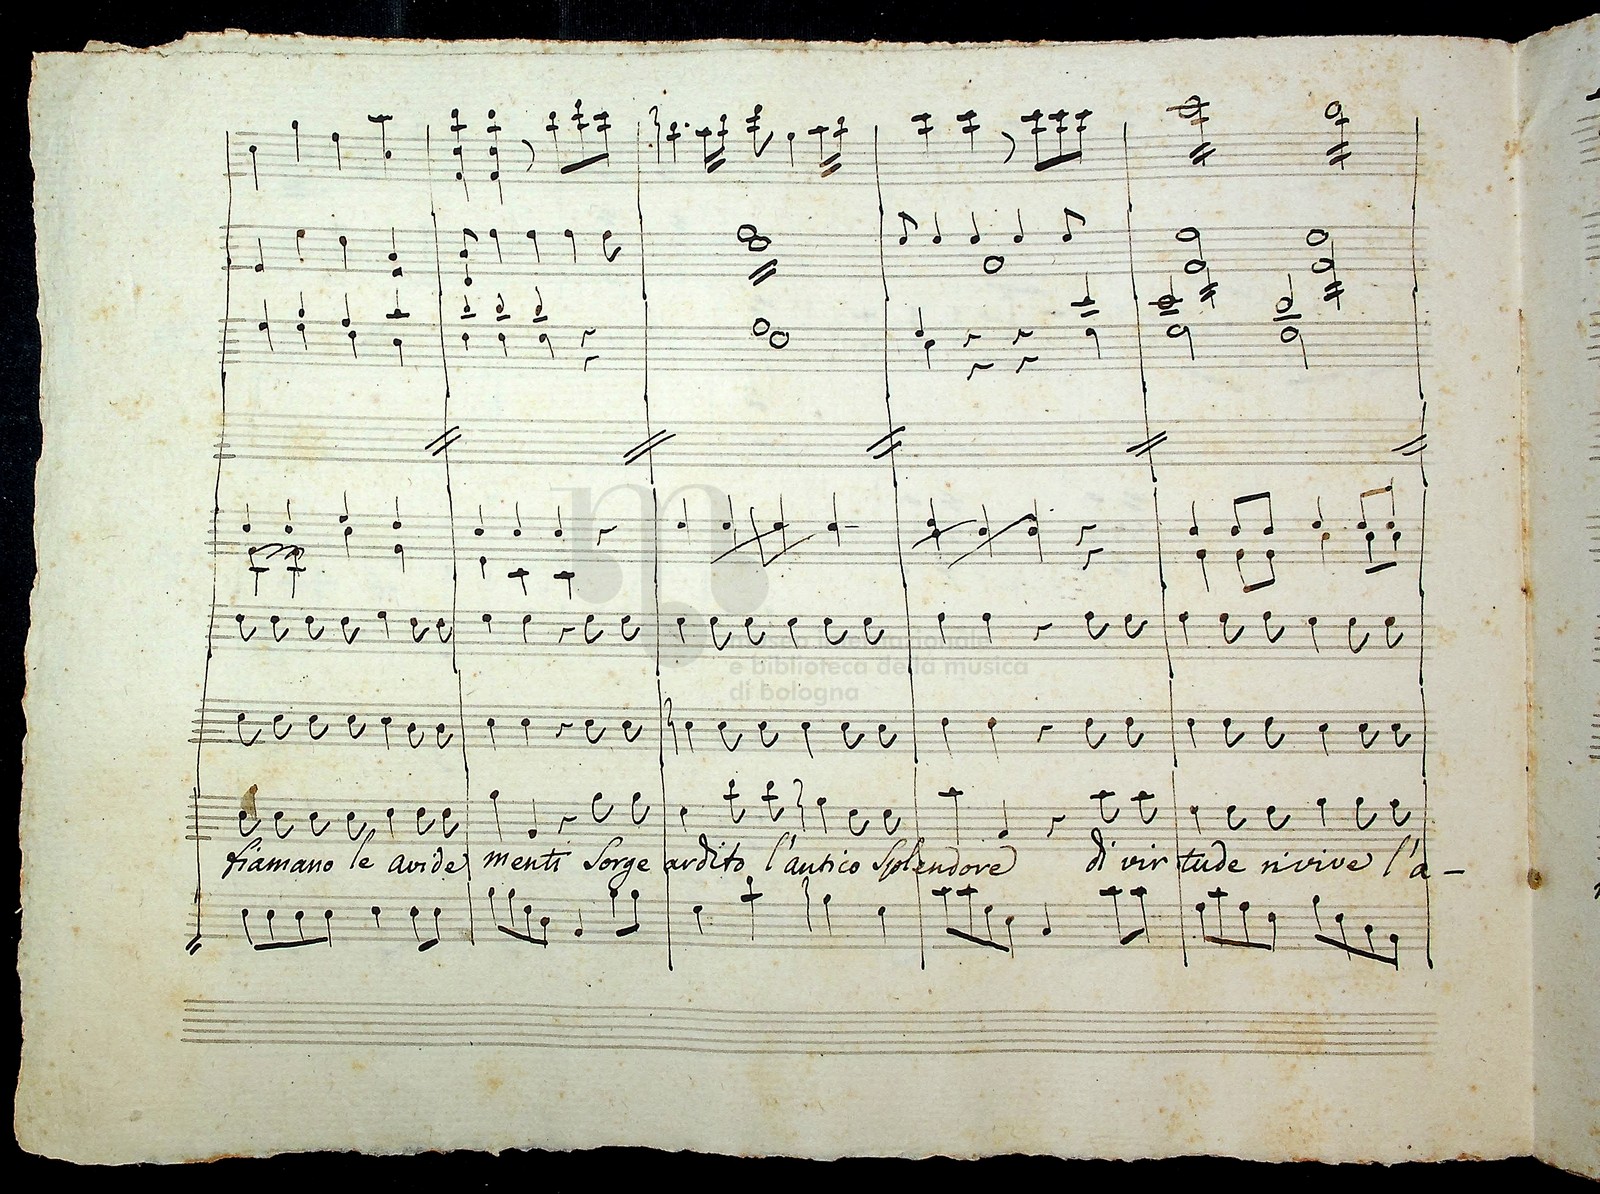 museo internazionale
e biblioteca della musica
di bologna
fiamano le avide menti Sorge ardito l'antico Splendore di vir tude rivive l'a-